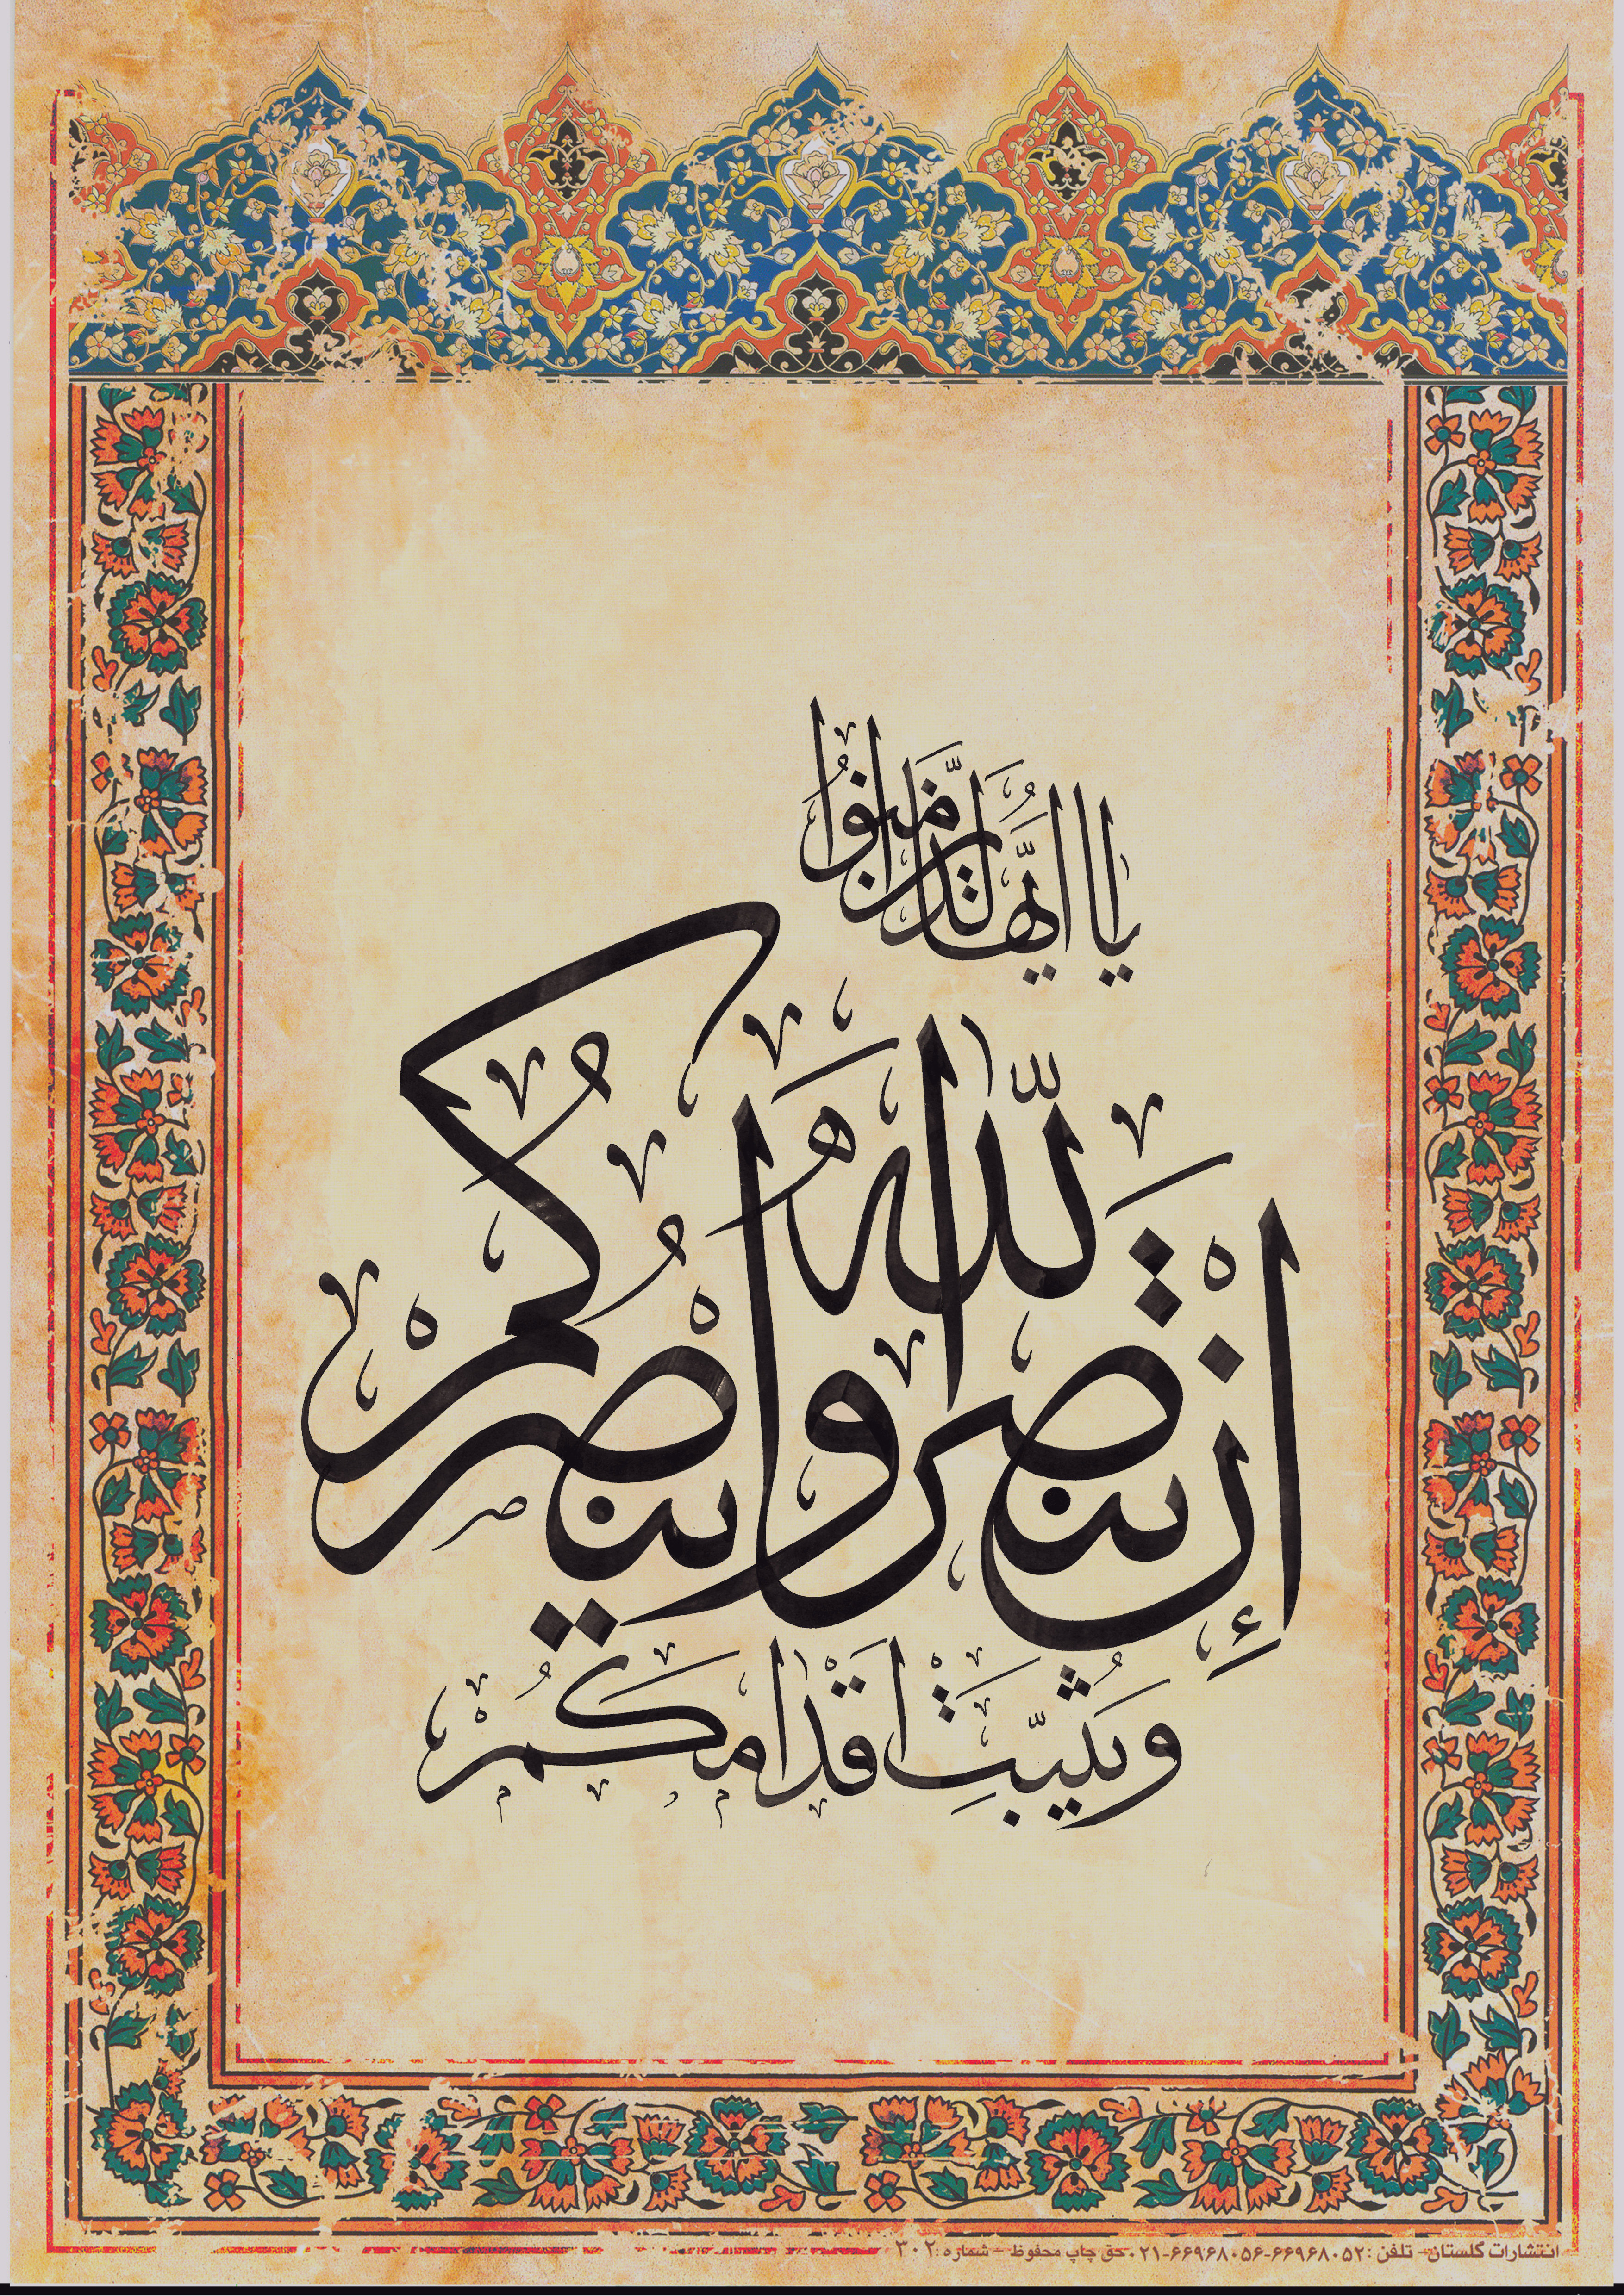 يا ايها الذين امنوا
إِنْ تَنْصُرُوا اللّٰهَ يَنْصُرْكُمْ
وَيُثَبِّتْ اَقْدامَكُمْ
انتشارات گلستان - تلفن: ۶۶۹۶۸۰۵۲-۶۶۹۶۸۰۵۶-۰۲۱ حق چاپ محفوظ - شماره: ۳۰۲